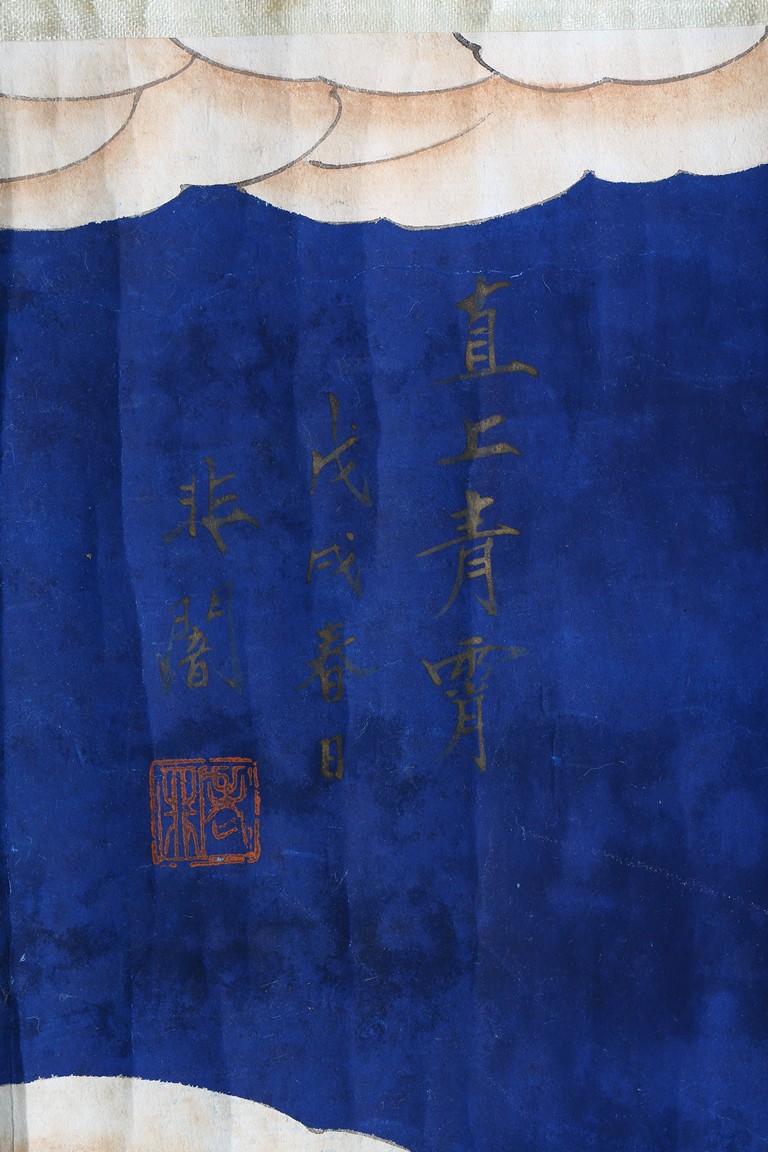 直上青霄
戊戌春日
非闇